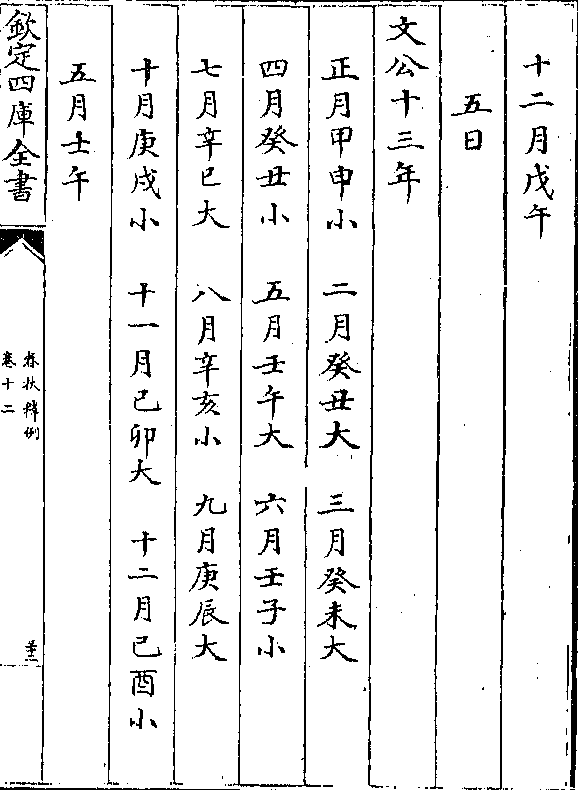 十二月戊午
五日
文公十三年
正月甲申小 二月癸丑大 三月癸未大
四月癸丑小 五月壬午大 六月壬子小
七月辛巳大 八月辛亥小 九月庚辰大
十月庚戌小 十一月己卯大 十二月己酉小
五月壬午
欽定四庫全書
春秋釋例
卷十二